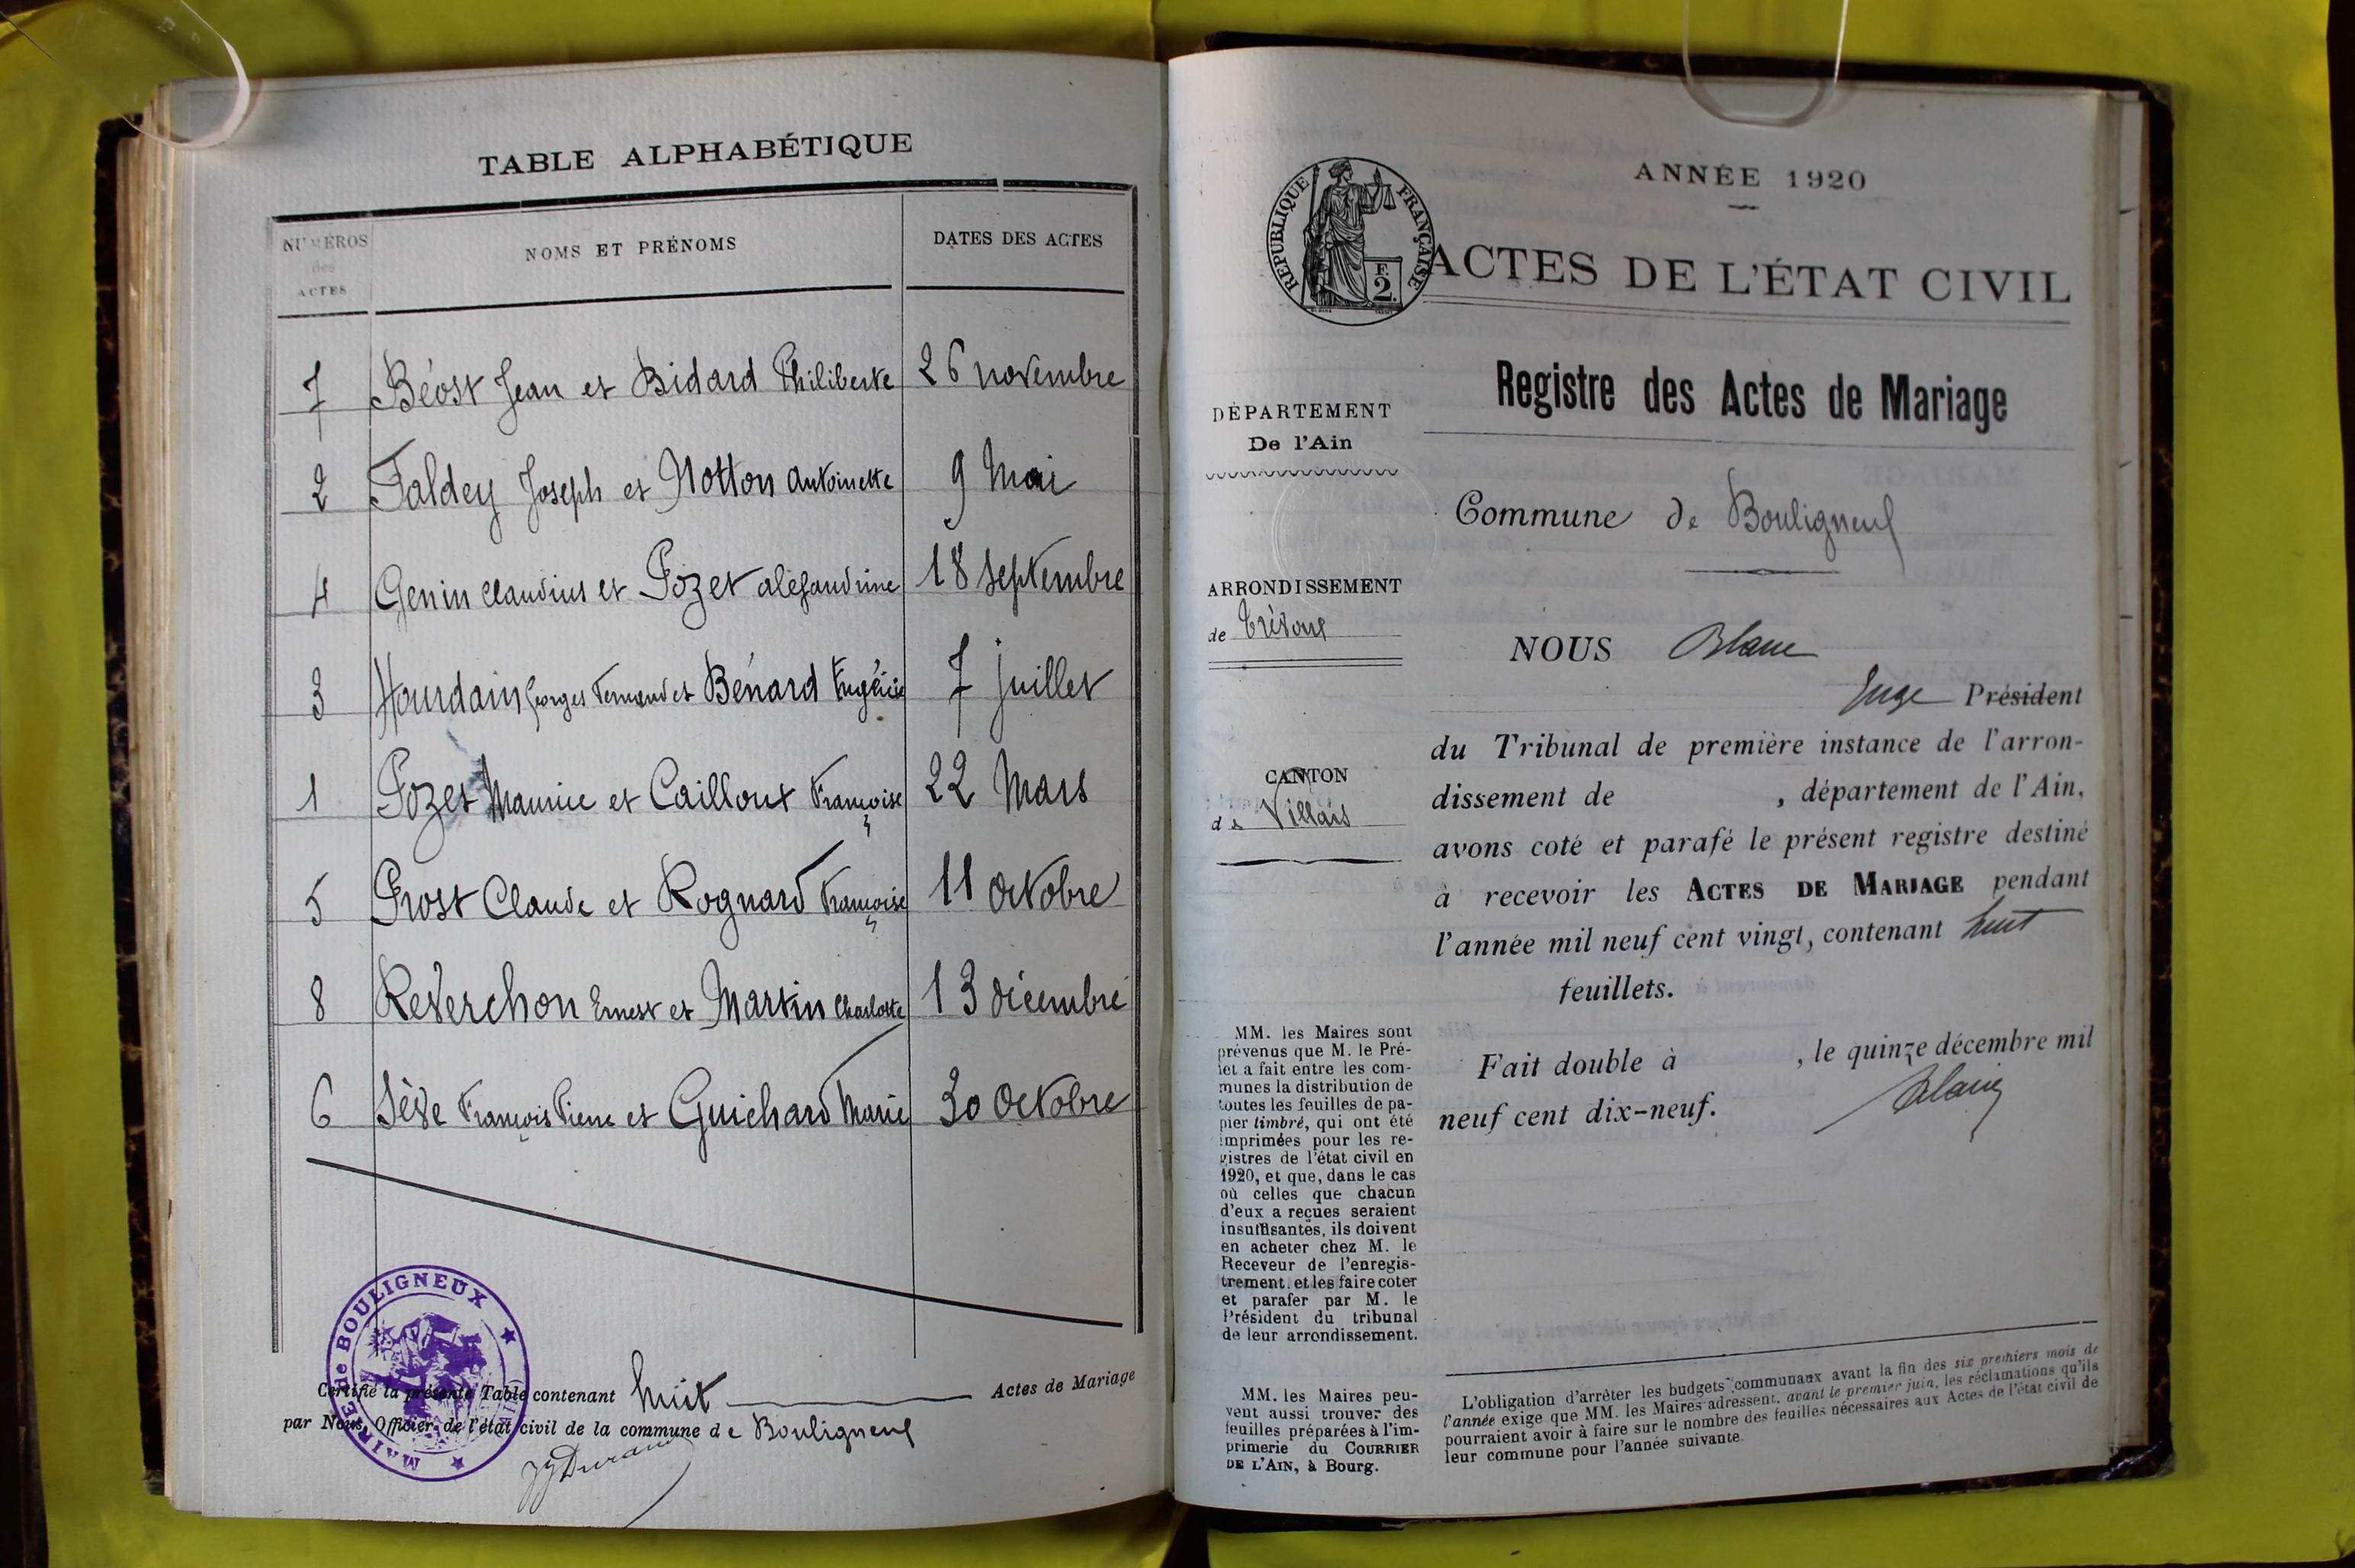 TABLE ALPHABÉTIQUE
NUMÉROS
des
ACTES
NOMS ET PRÉNOMS
DATES DES ACTES
7 Béost Jean et Bidard Philiberte 26 novembre
2 Faldey Joseph et Notton Antoinette 9 Mai
4 Genin Claudius et Pozet alexandrine 18 septembre
3 Hourdain Georges Fernand et Bénard 7 juillet
1 Pozet Maurice et Cailloux Françoise 22 Mars
5 Prost Claude et Rognard Françoise 11 octobre
8 Reverchon Ernest et Martin Charlotte 13 décembre
6 Sève François Pierre et Guichard Marie 30 octobre
MAIRIE de BOULIGNEUX
Certifié la présente Table contenant huit Actes de Mariage
par Nous, Officier de l'état civil de la commune de Bouligneux
JJ Durand
RÉPUBLIQUE FRANÇAISE
F.
2.
ANNÉE 1920
ACTES DE L'ÉTAT CIVIL
Registre des Actes de Mariage
DÉPARTEMENT
De l'Ain
ARRONDISSEMENT
de Trévoux
CANTON
de Villars
MM. les Maires sont
prévenus que M. le Pré-
fet a fait entre les com-
munes la distribution de
toutes les feuilles de pa-
pier timbré, qui ont été
imprimées pour les re-
gistres de l'état civil en
1920, et que, dans le cas
où celles que chacun
d'eux a reçues seraient
insuffisantes, ils doivent
en acheter chez M. le
Receveur de l'enregis-
trement. et les faire coter
et parafer par M. le
Président du tribunal
de leur arrondissement.
MM. les Maires peu-
vent aussi trouver des
feuilles préparées à l'im-
primerie du COURRIER
DE L'AIN, à Bourg.
Commune de Bouligneux
NOUS Blanc
Juge Président
du Tribunal de première instance de l'arron-
dissement de , département de l'Ain,
avons coté et parafé le présent registre destiné
à recevoir les ACTES DE MARIAGE pendant
l'année mil neuf cent vingt, contenant huit
feuillets.
Fait double à , le quinze décembre mil
neuf cent dix-neuf.
Blanc
L'obligation d'arrêter les budgets communaux avant la fin des six premiers mois de
l'année exige que MM. les Maires adressent, avant le premier juin, les réclamations qu'ils
pourraient avoir à faire sur le nombre des feuilles nécessaires aux Actes de l'état civil de
leur commune pour l'année suivante.